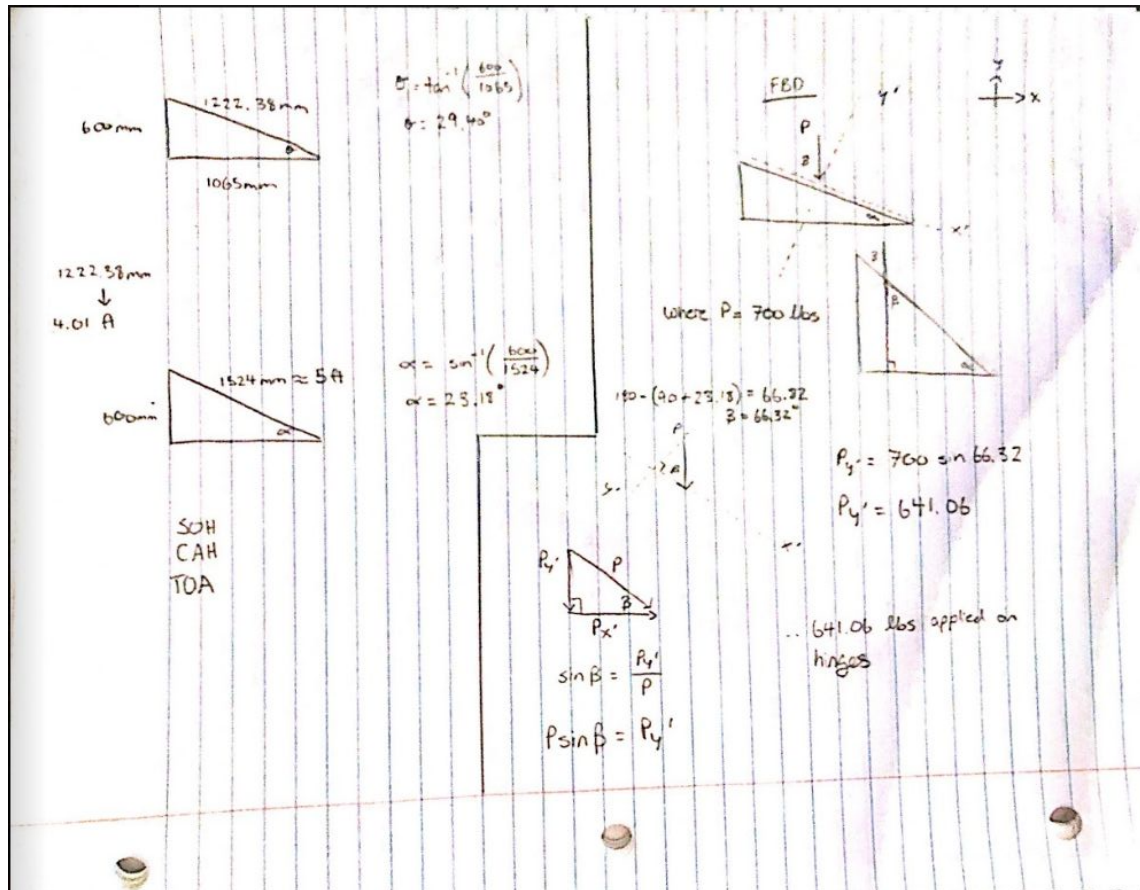 1222.38mm
600mm
θ
1065mm
θ = tan⁻¹(600/1065)
θ = 29.40°
1222.38mm
↓
4.01 ft
1524mm ≈ 5ft
600mm
α
α = sin⁻¹(600/1524)
α = 23.18°
SOH
CAH
TOA
FBD
y'
y
x
P
β
α
x'
β
β
α
where P = 700 lbs
180 - (90 + 23.18) = 66.82
β = 66.32°
P
x'
Py'
P
β
Px'
sin β = Py'/P
P sin β = Py'
Py' = 700 sin 66.32
Py' = 641.06
∴ 641.06 lbs applied on
hinges